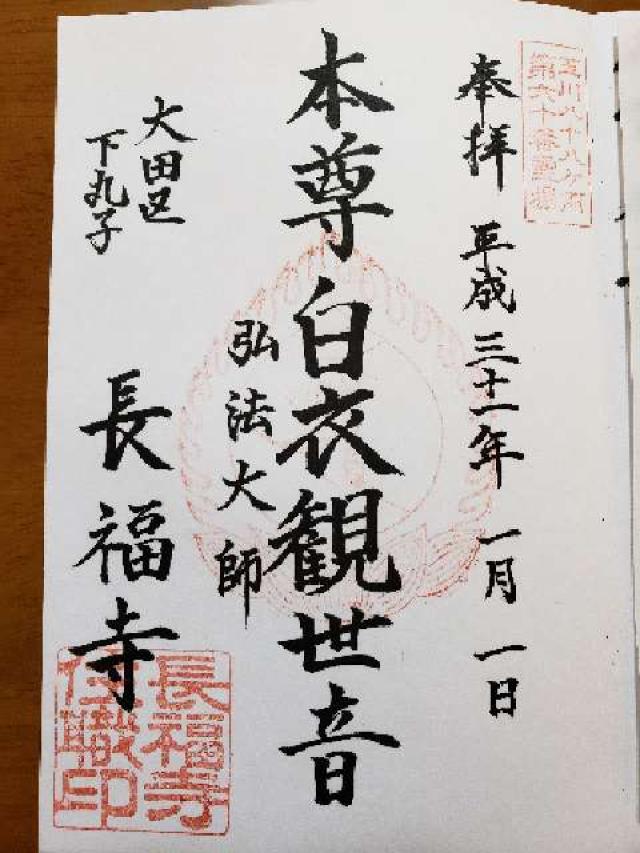 玉川八十八ヶ所
第六十番霊場
奉拝 平成三十一年 一月 一日
本尊白衣観世音
弘法大師
大田区
下丸子
長福寺
長福寺
住職印